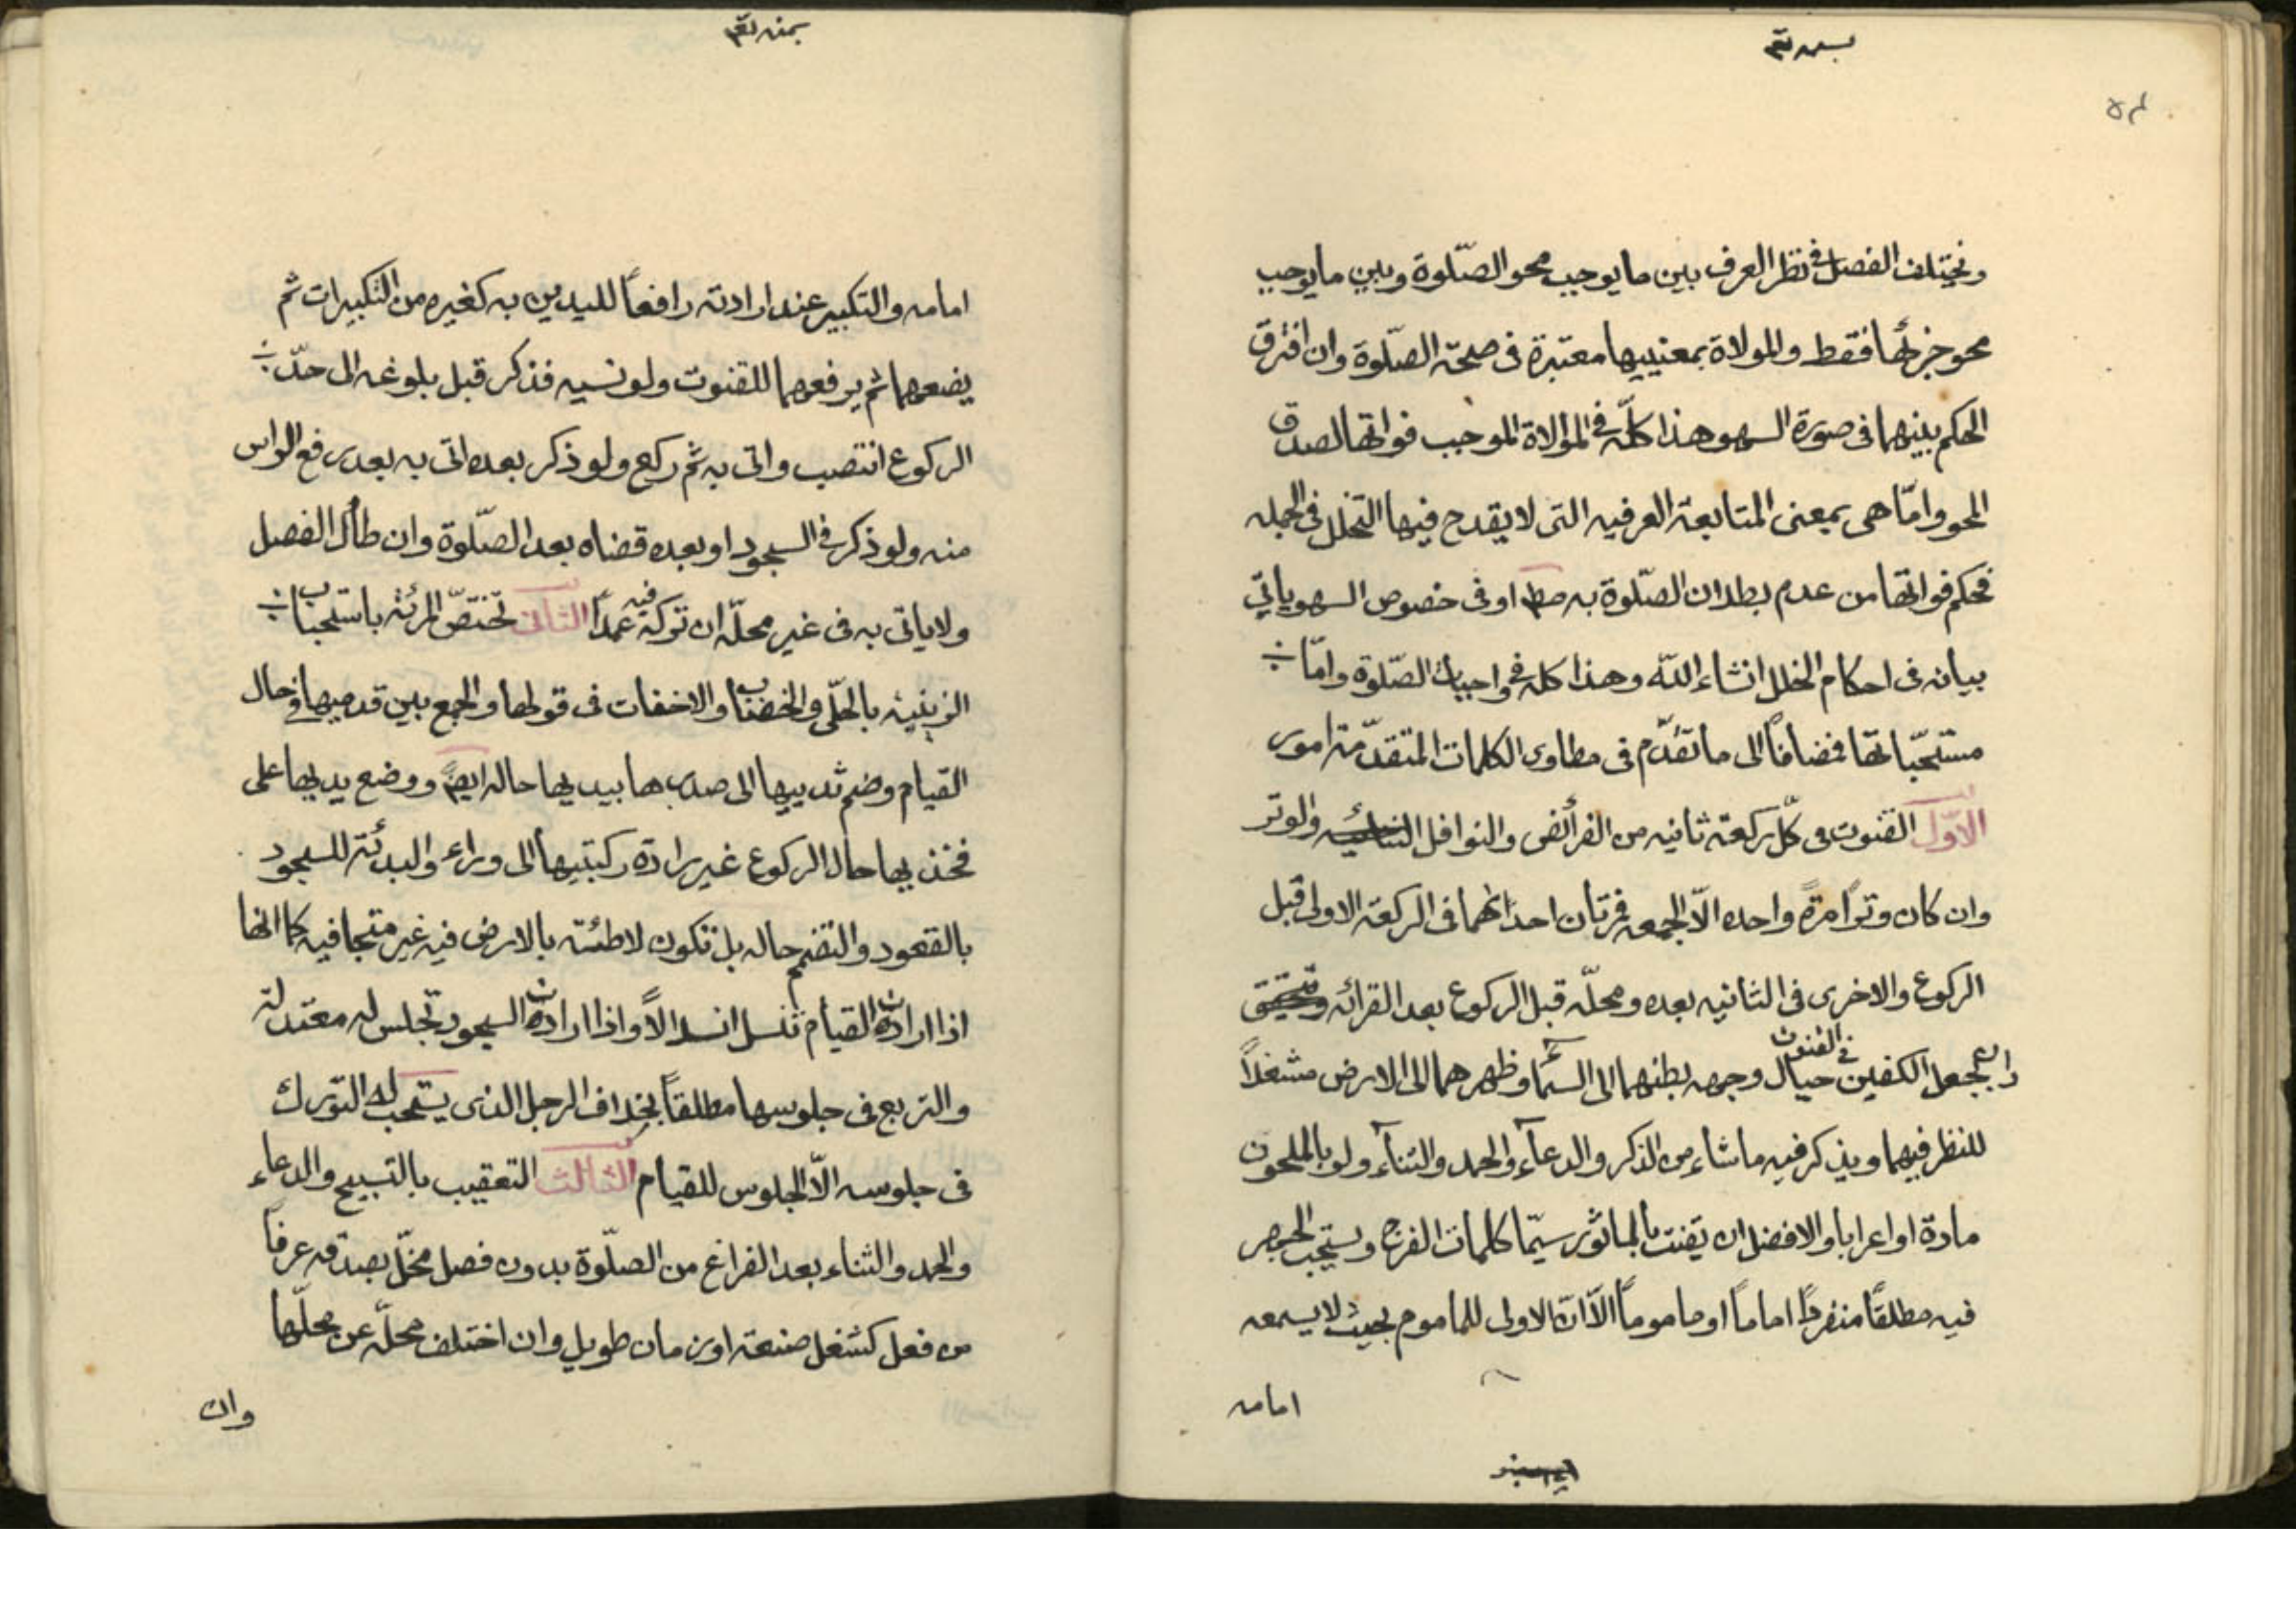 ويختلف الفصل في نظر العرف بين ما يوجب محو الصّلوة وبين ما يوجب
محو جزئها فقط والمولاة بمعنييها معتبرة فى صحّة الصّلوة وان افترق
الحكم بينهما فى صورة السهو هذا كلّه في الموالاة الموجب فواتها لصدق
المحو وامّا هى بمعنى المتابعة العرفيه التى لا يقدح فيها التخلل فى الجمله
فحكم فواتها من عدم بطلان الصّلوة به مط او فى خصوص السهو ياتي
بيانه فى احكام الخلل انشاء اللّه وهذا كله في واجبات الصّلوة وامّا
مستحبّاتها فمضافاً الى ما تقدّم فى مطاوى الكلمات المتقدّمة امور
الاوّل القنوت فى كلّ ركعة ثانيه من الفرائض والنوافل والوتر
وان كان وتراً مرّةً واحده الّا الجمعه فمرّتان احداهما فى الركعة الاولى قبل
الركوع والاخرى فى الثانيه بعده ومحلّه قبل الركوع بعد القرائه
في القنوت
جعل الكفين حيال وجهه بطنهما الى السّماء وظهرهما الى الارض مشغلاً
للنظر فيهما ويذكر فيه ما شاء من الذكر والدعآء والحمد والثنآء ولو بالملحون
مادة او اعرابا والافضل ان يقنت بالماثور سيّما كلمات الفرج ويستحب الجهر
فيه مطلقاً منفرداً اماماً او ماموماً الّا انّ الاولى للماموم بحيث لا يسمعه
امامه
امامه والتكبير عند ارادته رافعاً لليدين به كغيره من التكبيرات ثم
يضعهما ثم يرفعهما للقنوت ولو نسيه فذكر قبل بلوغه الى حدّ
الركوع انتصب واتى به ثم ركع ولو ذكر بعده اتى به بعد رفع الراس
منه ولو ذكر في السجود او بعده قضاه بعد الصّلوة وان طال الفصل
ولا ياتى به فى غير محلّه ان تركه فيه عمداً الثانى تختصّ المرئة باستحباب
الزينة بالحلّى والخضاب والاخفات فى قولها والجمع بين قدميها في حال
القيام وضم ثدييها الى صدرها بيديها حاله ايضً ووضع يديها على
فخذيها حال الركوع غير رادة ركبتيها الى وراء والبدئة للسجود
بالقعود والتضمم حاله بل تكون لاطئة بالارض فيه غير متجافيه كما انها
اذا ارادت القيام تنسل انسلالاً واذا ارادت السجود تجلس له معتدلة
والتربع فى جلوسها مطلقاً بخلاف الرجل الذى يستحب له التورك
فى جلوسه الّا الجلوس للقيام الثالث التعقيب بالتسبيح والدعاء
والحمد والثناء بعد الفراغ من الصلّوة بدون فصل مخلّ بصدقه عرفاً
من فعل كشغل صنعة او زمان طويل وان اختلف محلّه عن محلّها
وان